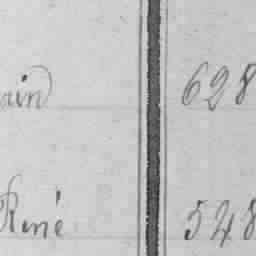 ain 628
René 548